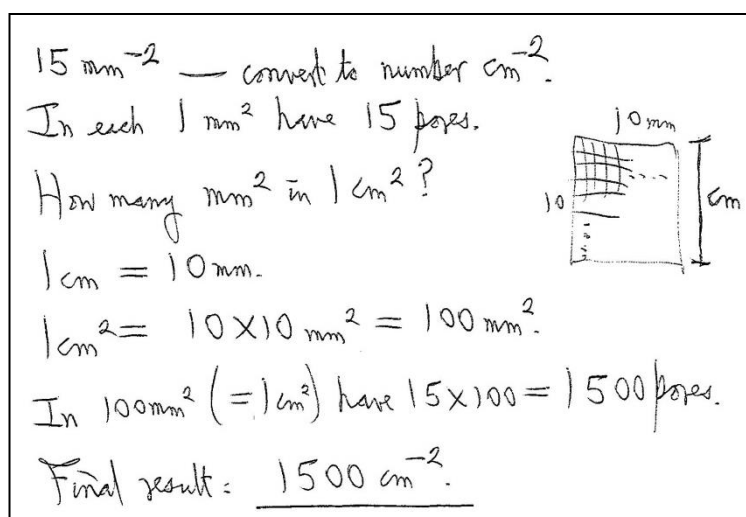 15 mm⁻² — convert to number cm⁻².
In each 1 mm² have 15 pores.
How many mm² in 1 cm²?
10 mm
10
1 cm
1 cm = 10 mm.
1 cm² = 10 × 10 mm² = 100 mm².
In 100 mm² (= 1 cm²) have 15 × 100 = 1500 pores.
Final result: 1500 cm⁻².